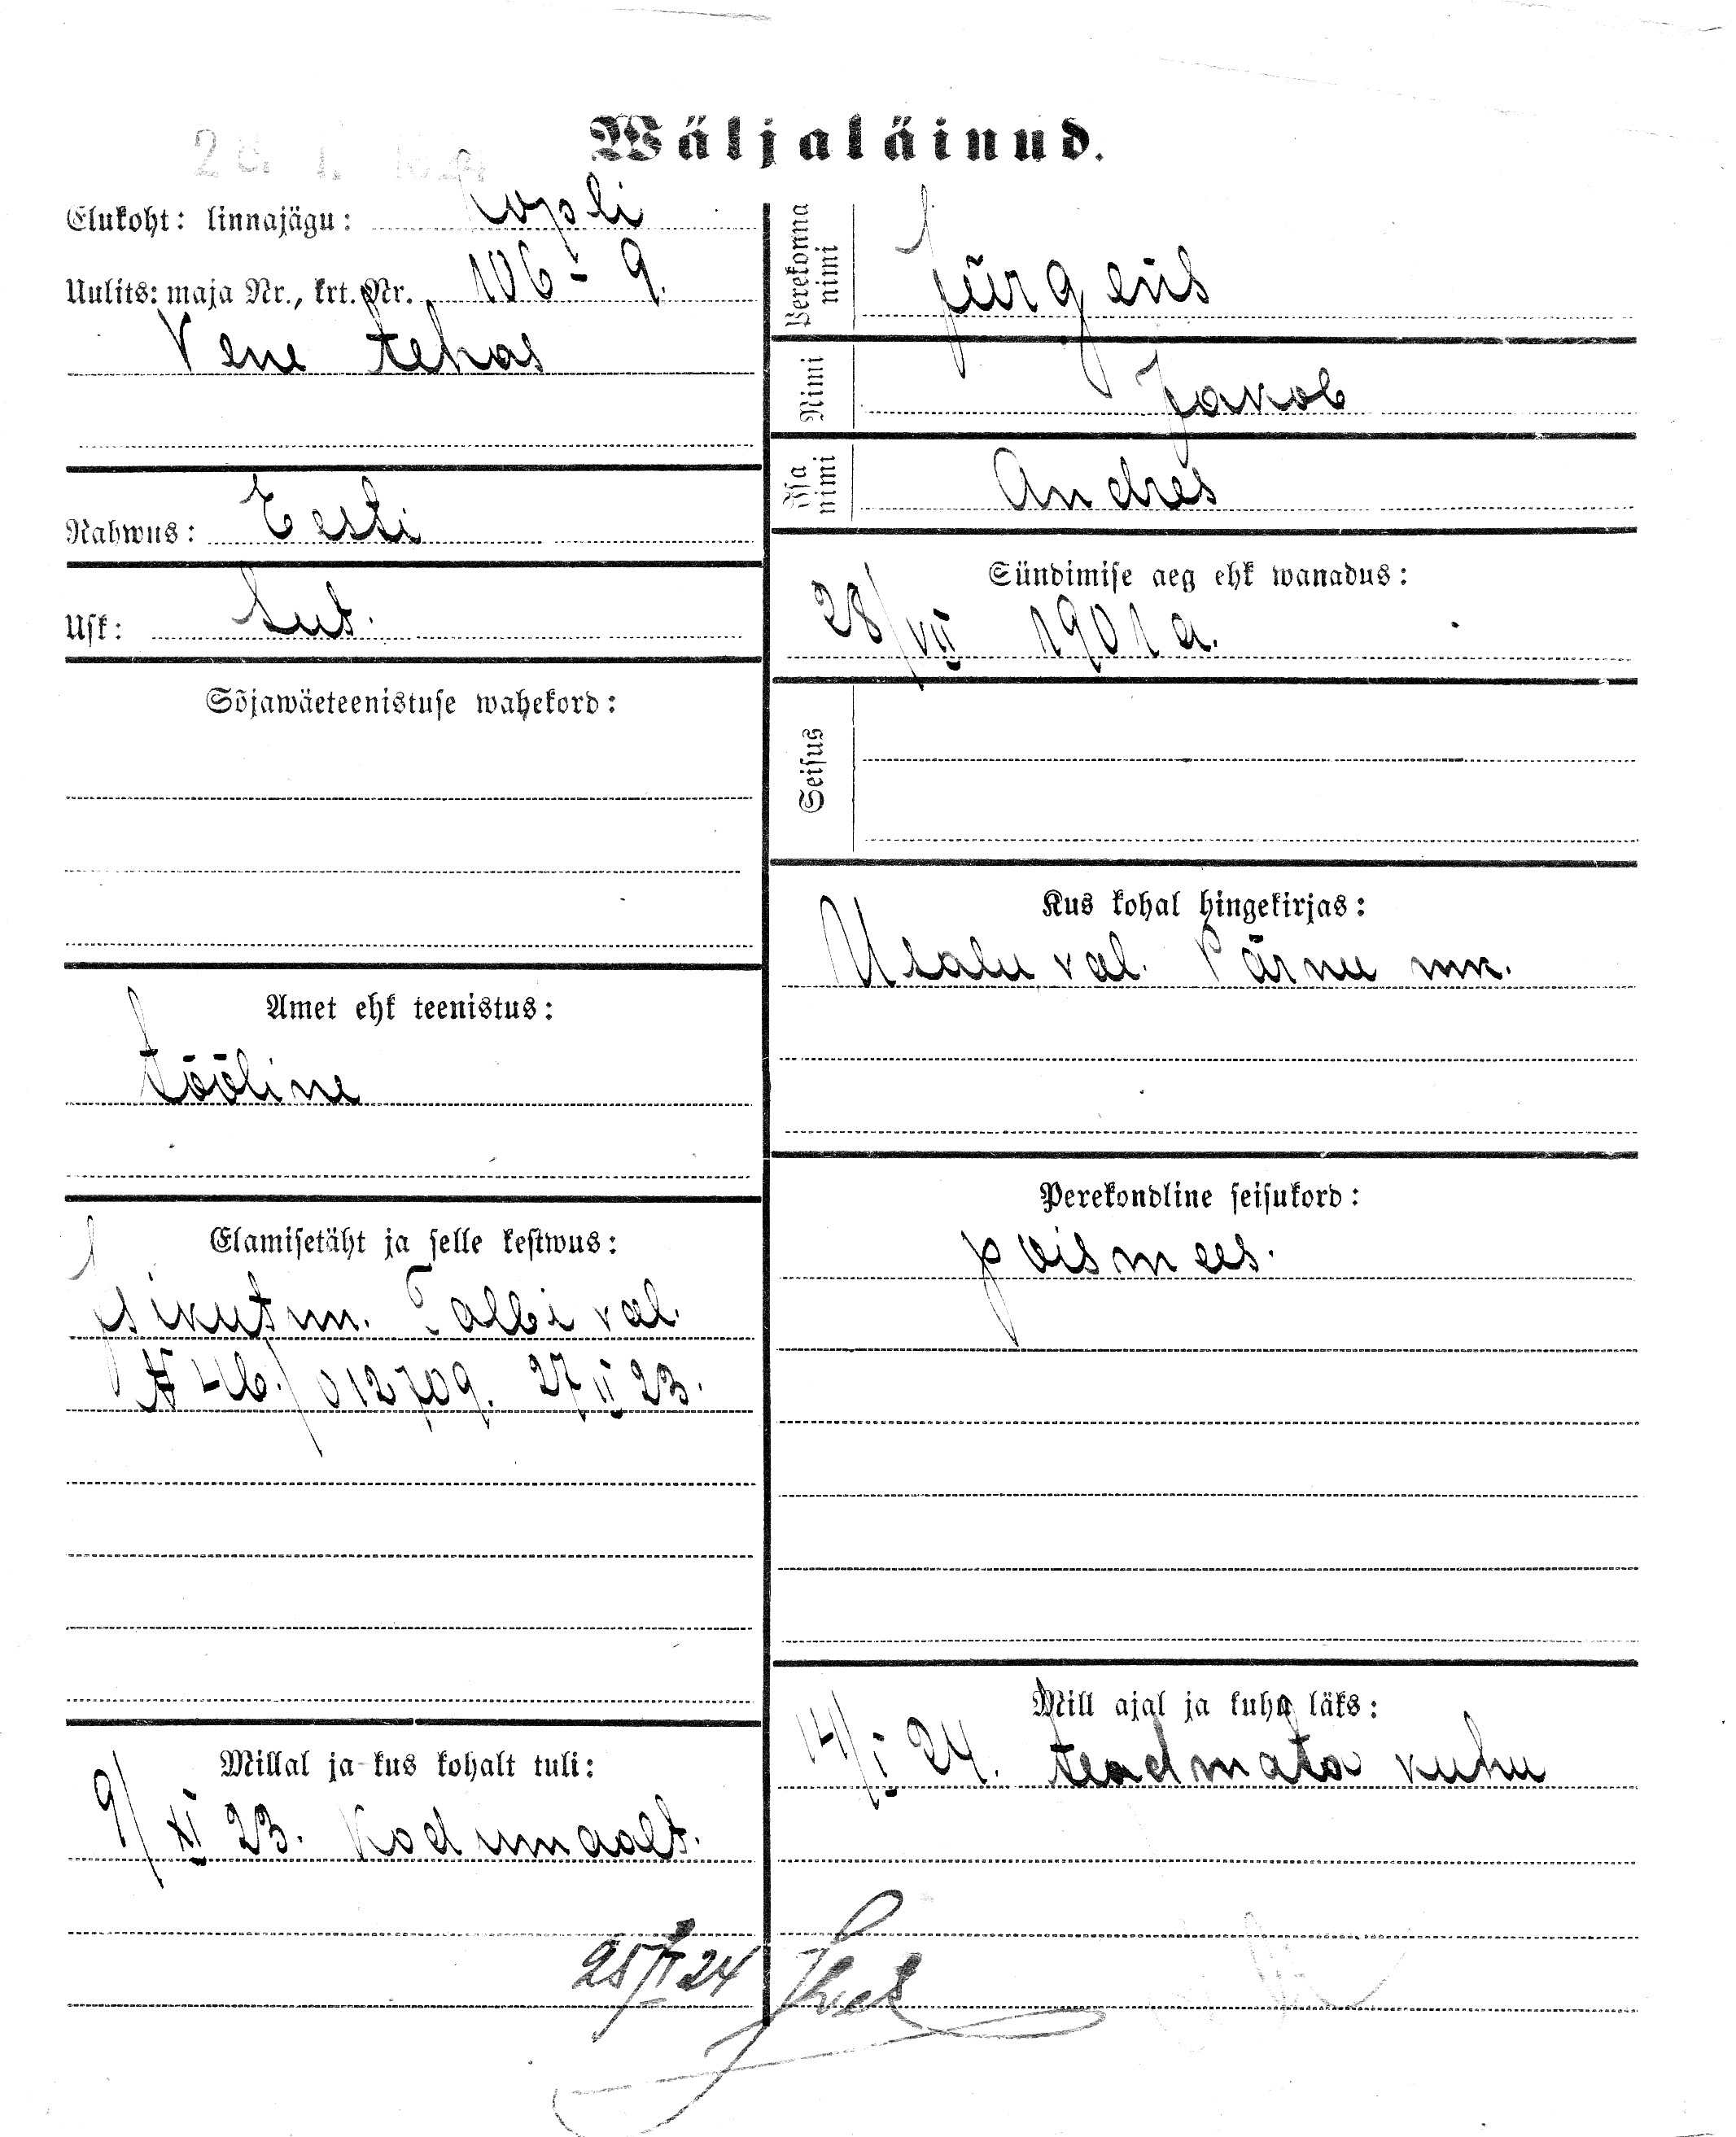 Wäljaläinud.
Elukoht: linnajägu: Kopli
Uulits: maja Nr., krt. Nr. 106-9.
Vene tehas
Rahwus: Eesti
Usk: Lut.
Sõjawäeteenistuse wahekord:
Amet ehk teenistus:
tööline
Elamisetäht ja selle kestwus:
Isikutun. Talli val.
№ 46./012709. 27 II 23.
Millal ja kus kohalt tuli:
9/XI 23. Kodumaalt.
Perekonna nimi
Jürgens
Nimi
Jakob
Isa nimi
Andres
Sündimise aeg ehk wanadus:
28/VII 1901 a.
Seisus
Kus kohal hingekirjas:
Usalu val. Pärnu mk.
Perekondline seisukord:
poismees.
Mill ajal ja kuhu läks:
14/I 24. teadmata kuhu